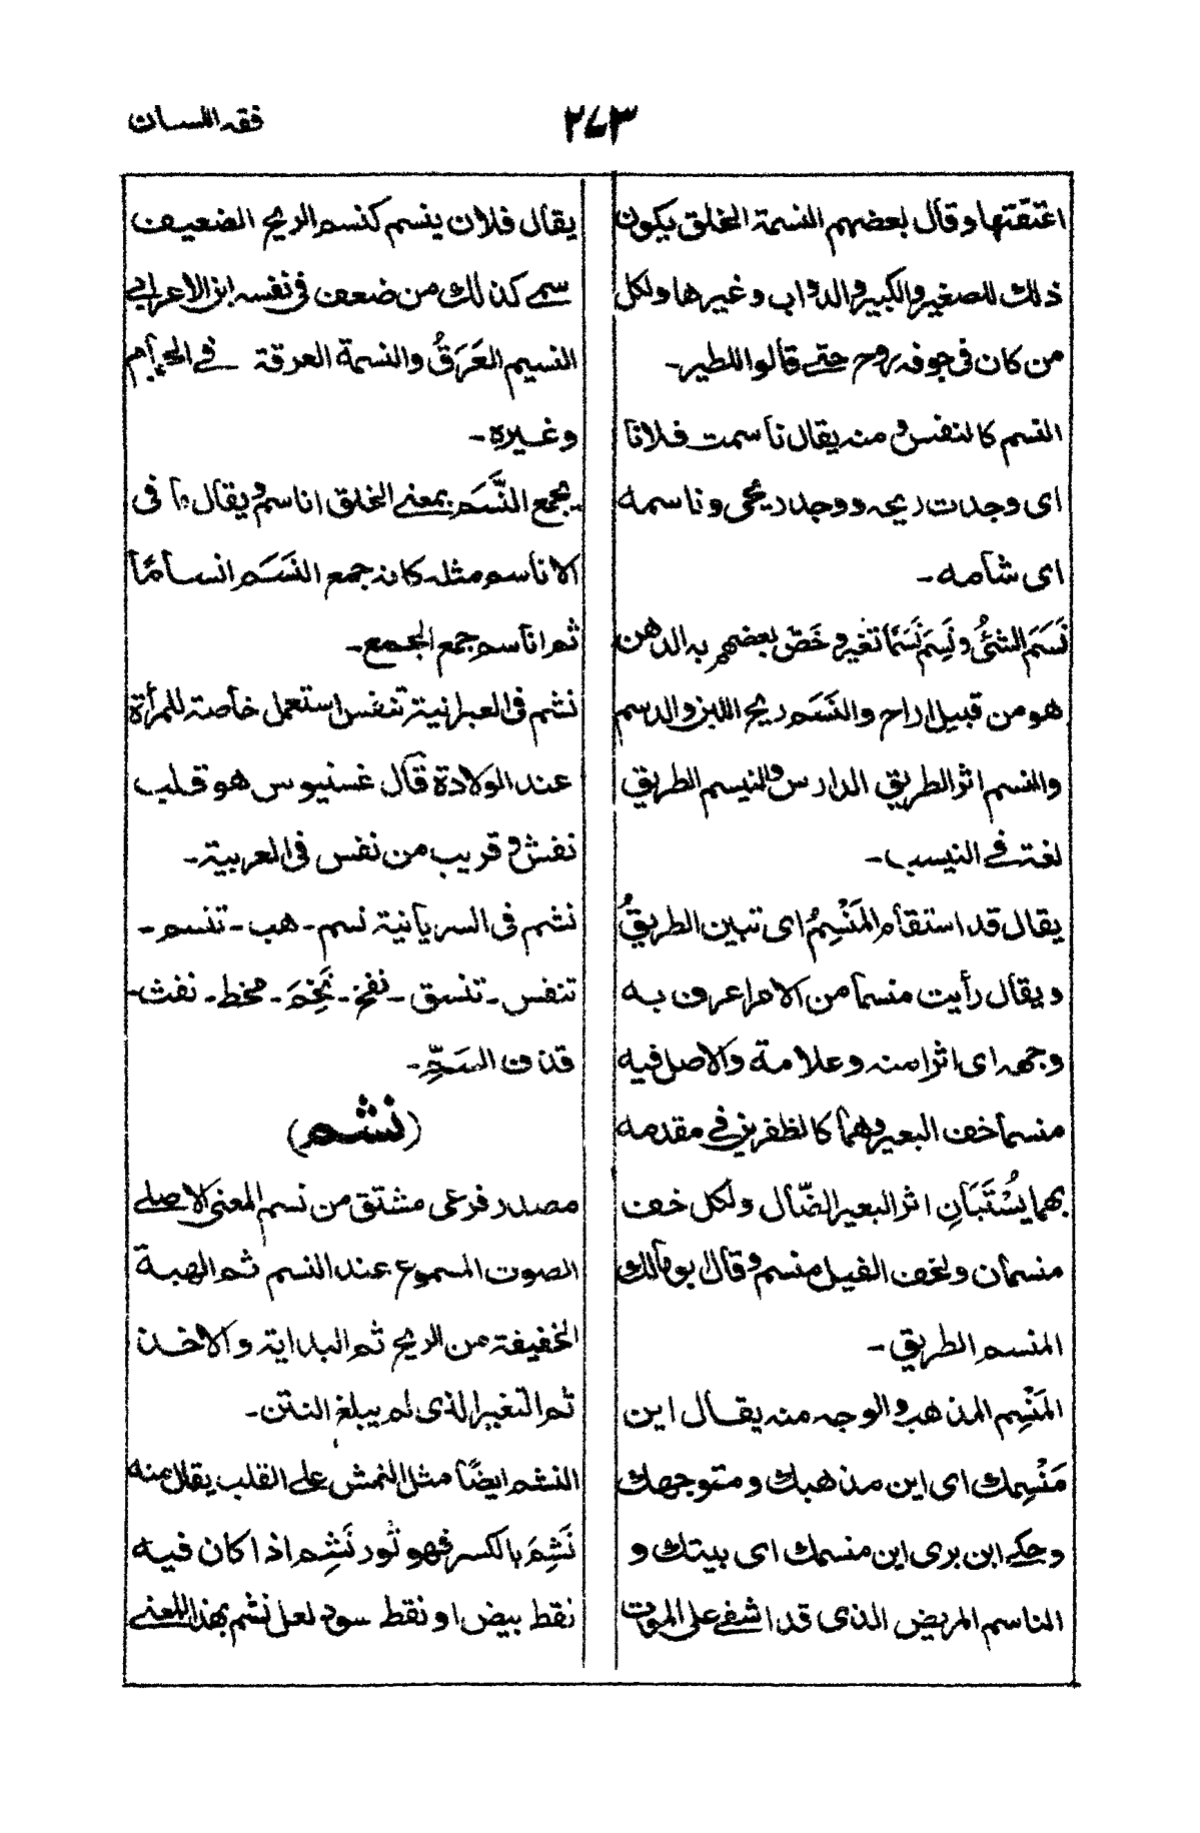 فقہ اللسان
٢٧٣
اعتقتها وقال بعضهم النسمة الخلق يكون
ذلك للصغير والكبير والدواب وغيرها ولكل
من كان فى جوفه روح حتى قالوا للطير۔
النسم كالنفس و منه يقال ناسمت فلانا
اى وجدت ريحه ووجد ريحى وناسمه
اى شامه۔
نَسَمَ الشئُ ونَسِمَ نَسَمًا تغير و خَصّ بعضهم به الدهن
هو من قبيل اراح والنَسَم ريح اللبن والدسم
والنسم اثر الطريق الدارس والنيسم الطريق
لغة فى النيسب۔
يقال قد استقام المَنْسِمُ اى تبين الطريقُ
ويقال رأيت منسما من الامر اعرف به
وجهه اى اثرا منه وعلامة والاصل فيه
منسما خف البعير وهما كالظفرين فى مقدمه
بهما يُسْتَبَانِ اثر البعير الضّال ولكل خف
منسمان ولخف الفيل منسم وقال ابو مالك و
المنسم الطريق۔
المَنْسِم المذهب والوجه منه يقال اين
مَنْسِمك اى اين مذهبك و متوجهك
وحكى ابن برى اين منسمك اى بيتك و
الناسم المريض الذى قد اشفى على الموت
يقال فلان ينسم كنسم الريح الضعيف
سمى كذلك من ضعف فى نفسه ابن الاعرابى
النسيم العَرَقُ والنسمة العرقة فى الحمام
وغيره۔
يجمع النَّسَم بمعنى الخلق اناسم ويقال ما فى
الاناسم مثله كانه جمع النَسَم انساما
ثم اناسم جمع الجمع۔
نشم فى العبرانية تنفس استعمل خاصة للمرأة
عند الولادة قال غسنيوس هو قلب
نفش و قريب من نفس فى العربية۔
نشم فى السريانية نسم۔ هب۔ تنسم۔
تنفس۔ تنسق۔ نفخ۔ نَخِمَ۔ مخط۔ نفث۔
قذف السَحِّ۔
(نشم)
مصدر فرعى مشتق من نسم المعنى الاصلى
الصوت المسموع عند النسم ثم الهبة
الخفيفة من الريح ثم البداية والاخذ
ثم التغير الذى لم يبلغ النتن۔
النشم ايضًا مثل النمش على القلب يقال منه
نَشِمَ بالكسر فهو ثور نَشِم اذا كان فيه
نقط بيض او نقط سود لعل نشم بهذا المعنى